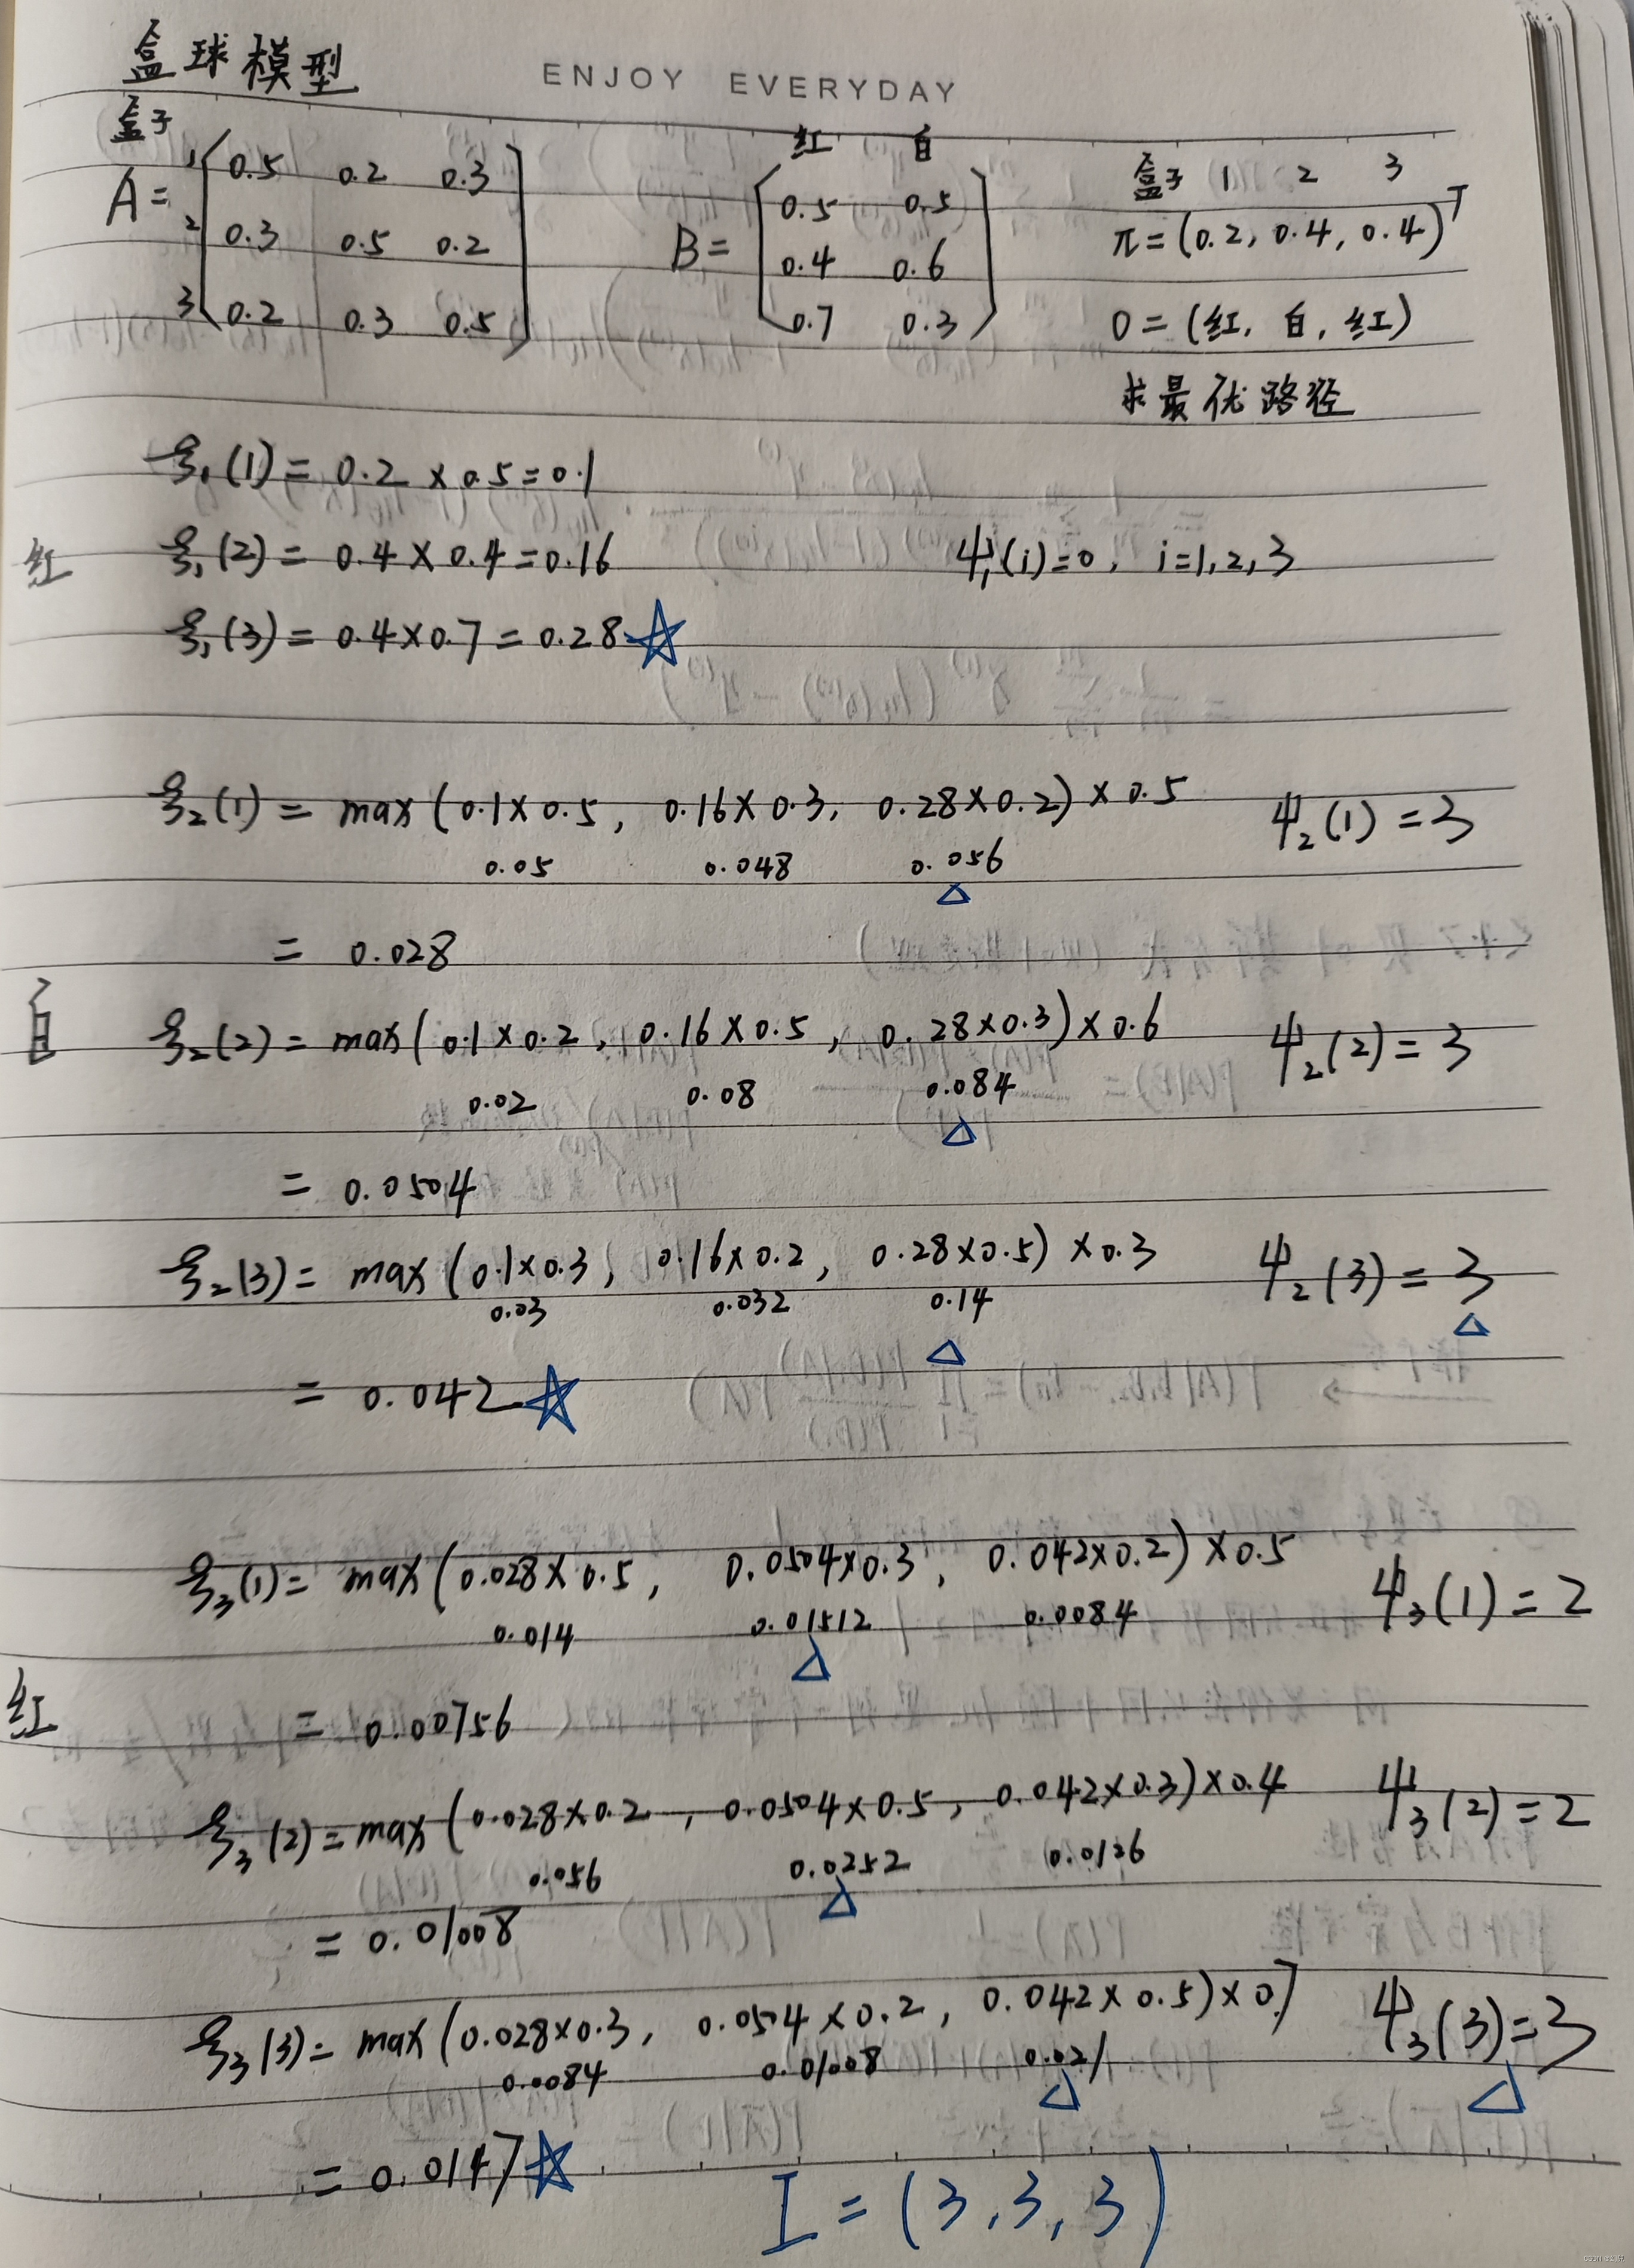 盒球模型
ENJOY EVERYDAY
盒子
红 白
盒子 1 2 3
A = 1 [0.5 0.2 0.3
2 0.3 0.5 0.2
3 0.2 0.3 0.5]
B = [0.5 0.5
0.4 0.6
0.7 0.3]
π = (0.2, 0.4, 0.4)ᵀ
O = (红, 白, 红)
求最优路径
红
δ₁(1) = 0.2 × 0.5 = 0.1
δ₁(2) = 0.4 × 0.4 = 0.16 ψ₁(i) = 0, i = 1, 2, 3
δ₁(3) = 0.4 × 0.7 = 0.28 ☆
白
δ₂(1) = max(0.1 × 0.5, 0.16 × 0.3, 0.28 × 0.2) × 0.5 ψ₂(1) = 3
0.05 0.048 0.056
△
= 0.028
δ₂(2) = max(0.1 × 0.2, 0.16 × 0.5, 0.28 × 0.3) × 0.6 ψ₂(2) = 3
0.02 0.08 0.084
△
= 0.0504
δ₂(3) = max(0.1 × 0.3, 0.16 × 0.2, 0.28 × 0.5) × 0.3 ψ₂(3) = 3
0.03 0.032 0.14
△ △
= 0.042 ☆
红
δ₃(1) = max(0.028 × 0.5, 0.0504 × 0.3, 0.042 × 0.2) × 0.5 ψ₃(1) = 2
0.014 0.01512 0.0084
△
= 0.00756
δ₃(2) = max(0.028 × 0.2, 0.0504 × 0.5, 0.042 × 0.3) × 0.4 ψ₃(2) = 2
0.056 0.0252 0.0126
△
= 0.01008
δ₃(3) = max(0.028 × 0.3, 0.0504 × 0.2, 0.042 × 0.5) × 0.7 ψ₃(3) = 3
0.0084 0.01008 0.021
△ △
= 0.0147 ☆
I = (3, 3, 3)